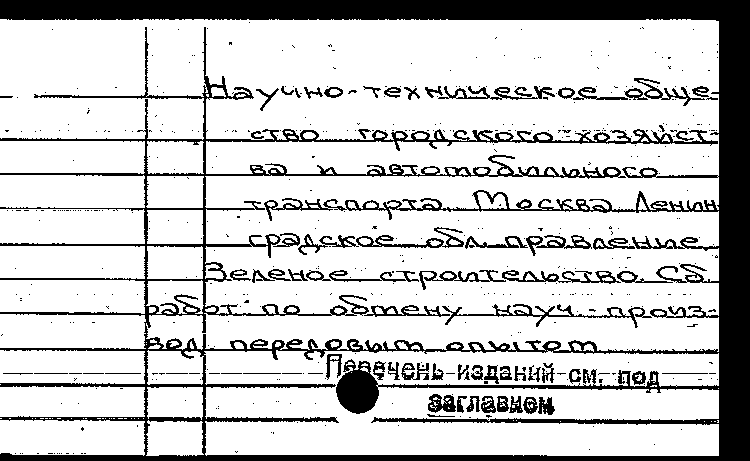 Научно-техническое обще-
ство городского хозяйст-
ва и автомобильного
транспорта. Москва. Ленин-
градское обл. правление.
Зеленое строительство. Сб.
работ по обмену науч.-произ-
вод. передовым опытом
Перечень изданий см. под
заглавием